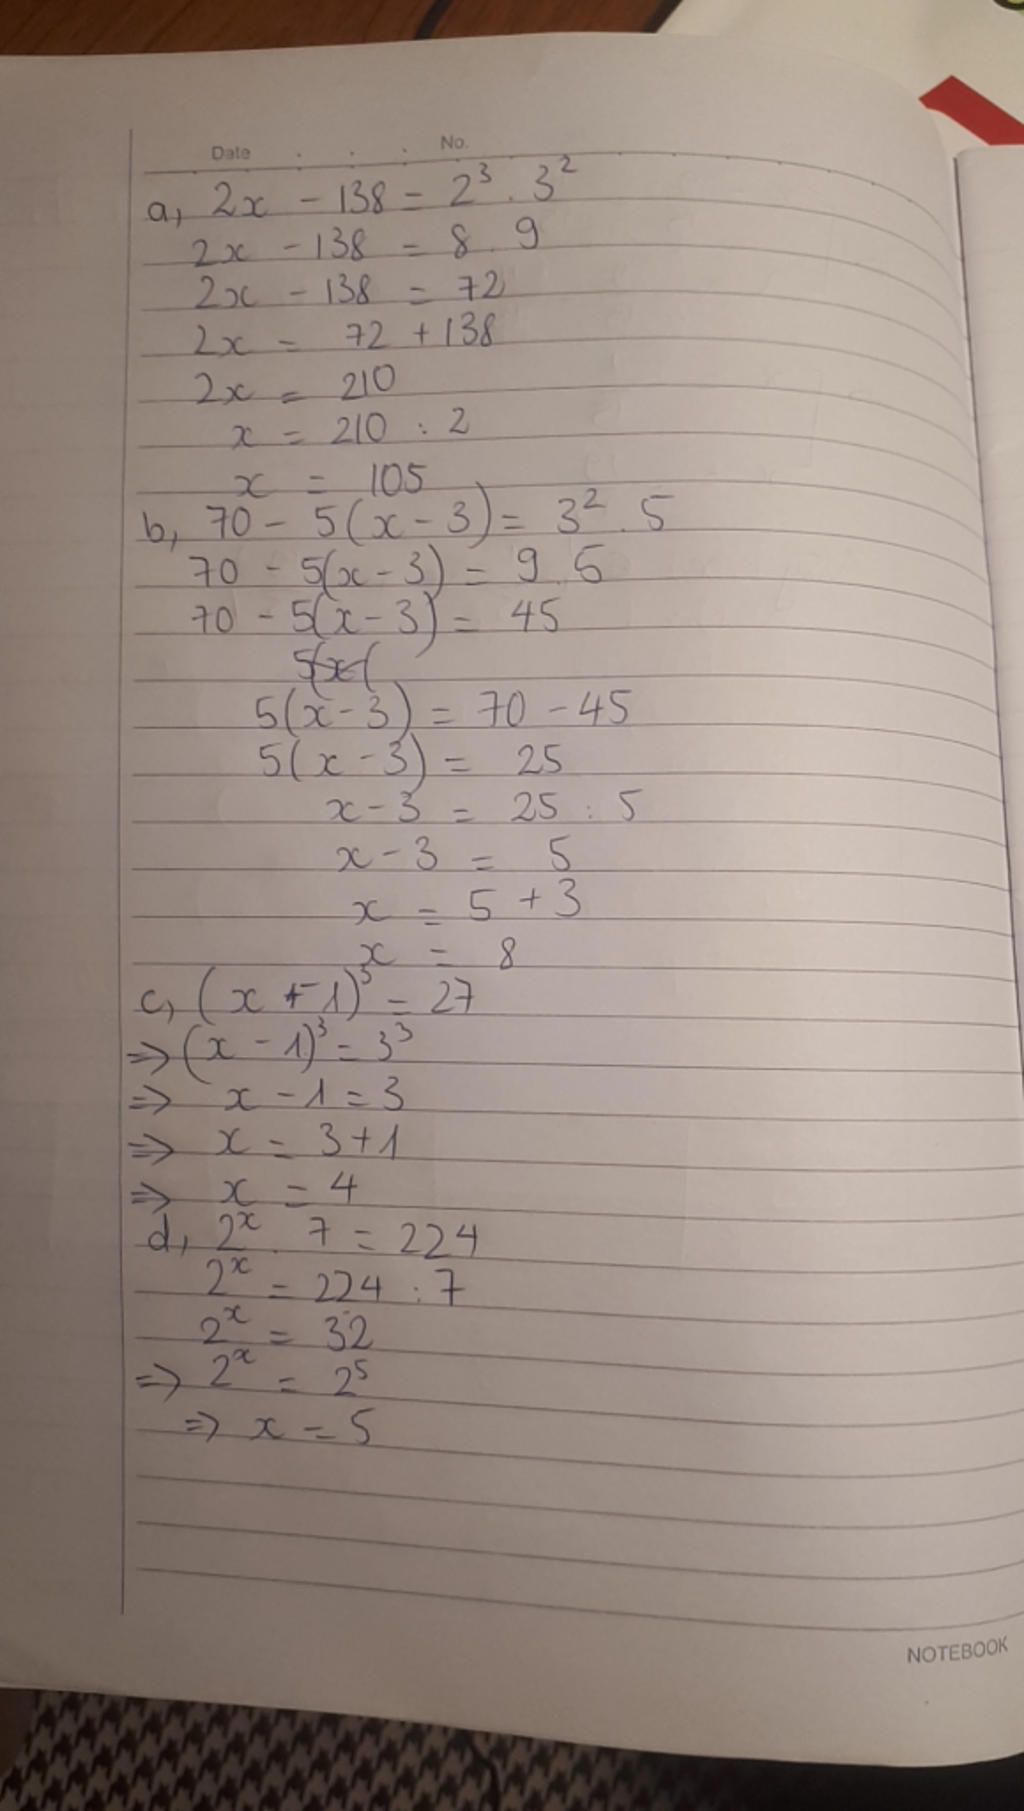 Date . . . No.
a, 2x - 138 = 2³ . 3²
2x - 138 = 8 . 9
2x - 138 = 72
2x = 72 + 138
2x = 210
x = 210 : 2
x = 105
b, 70 - 5(x - 3) = 3² . 5
70 - 5(x - 3) = 9 . 5
70 - 5(x - 3) = 45
5(x(
5(x - 3) = 70 - 45
5(x - 3) = 25
x - 3 = 25 : 5
x - 3 = 5
x = 5 + 3
x = 8
c, (x - 1)³ = 27
=> (x - 1)³ = 3³
=> x - 1 = 3
=> x = 3 + 1
=> x = 4
d, 2ˣ . 7 = 224
2ˣ = 224 : 7
2ˣ = 32
=> 2ˣ = 2⁵
=> x = 5
NOTEBOOK